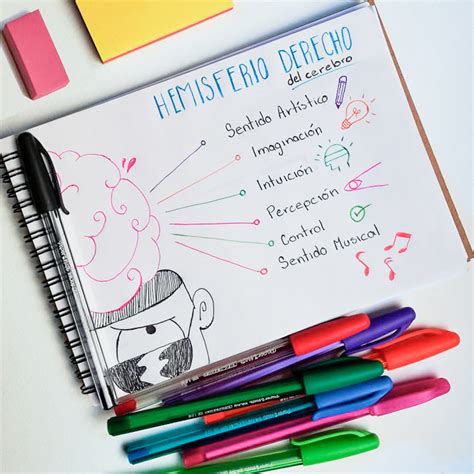 HEMISFERIO DERECHO
del cerebro
Sentido Artístico
Imaginación
Intuición
Percepción
Control
Sentido Musical